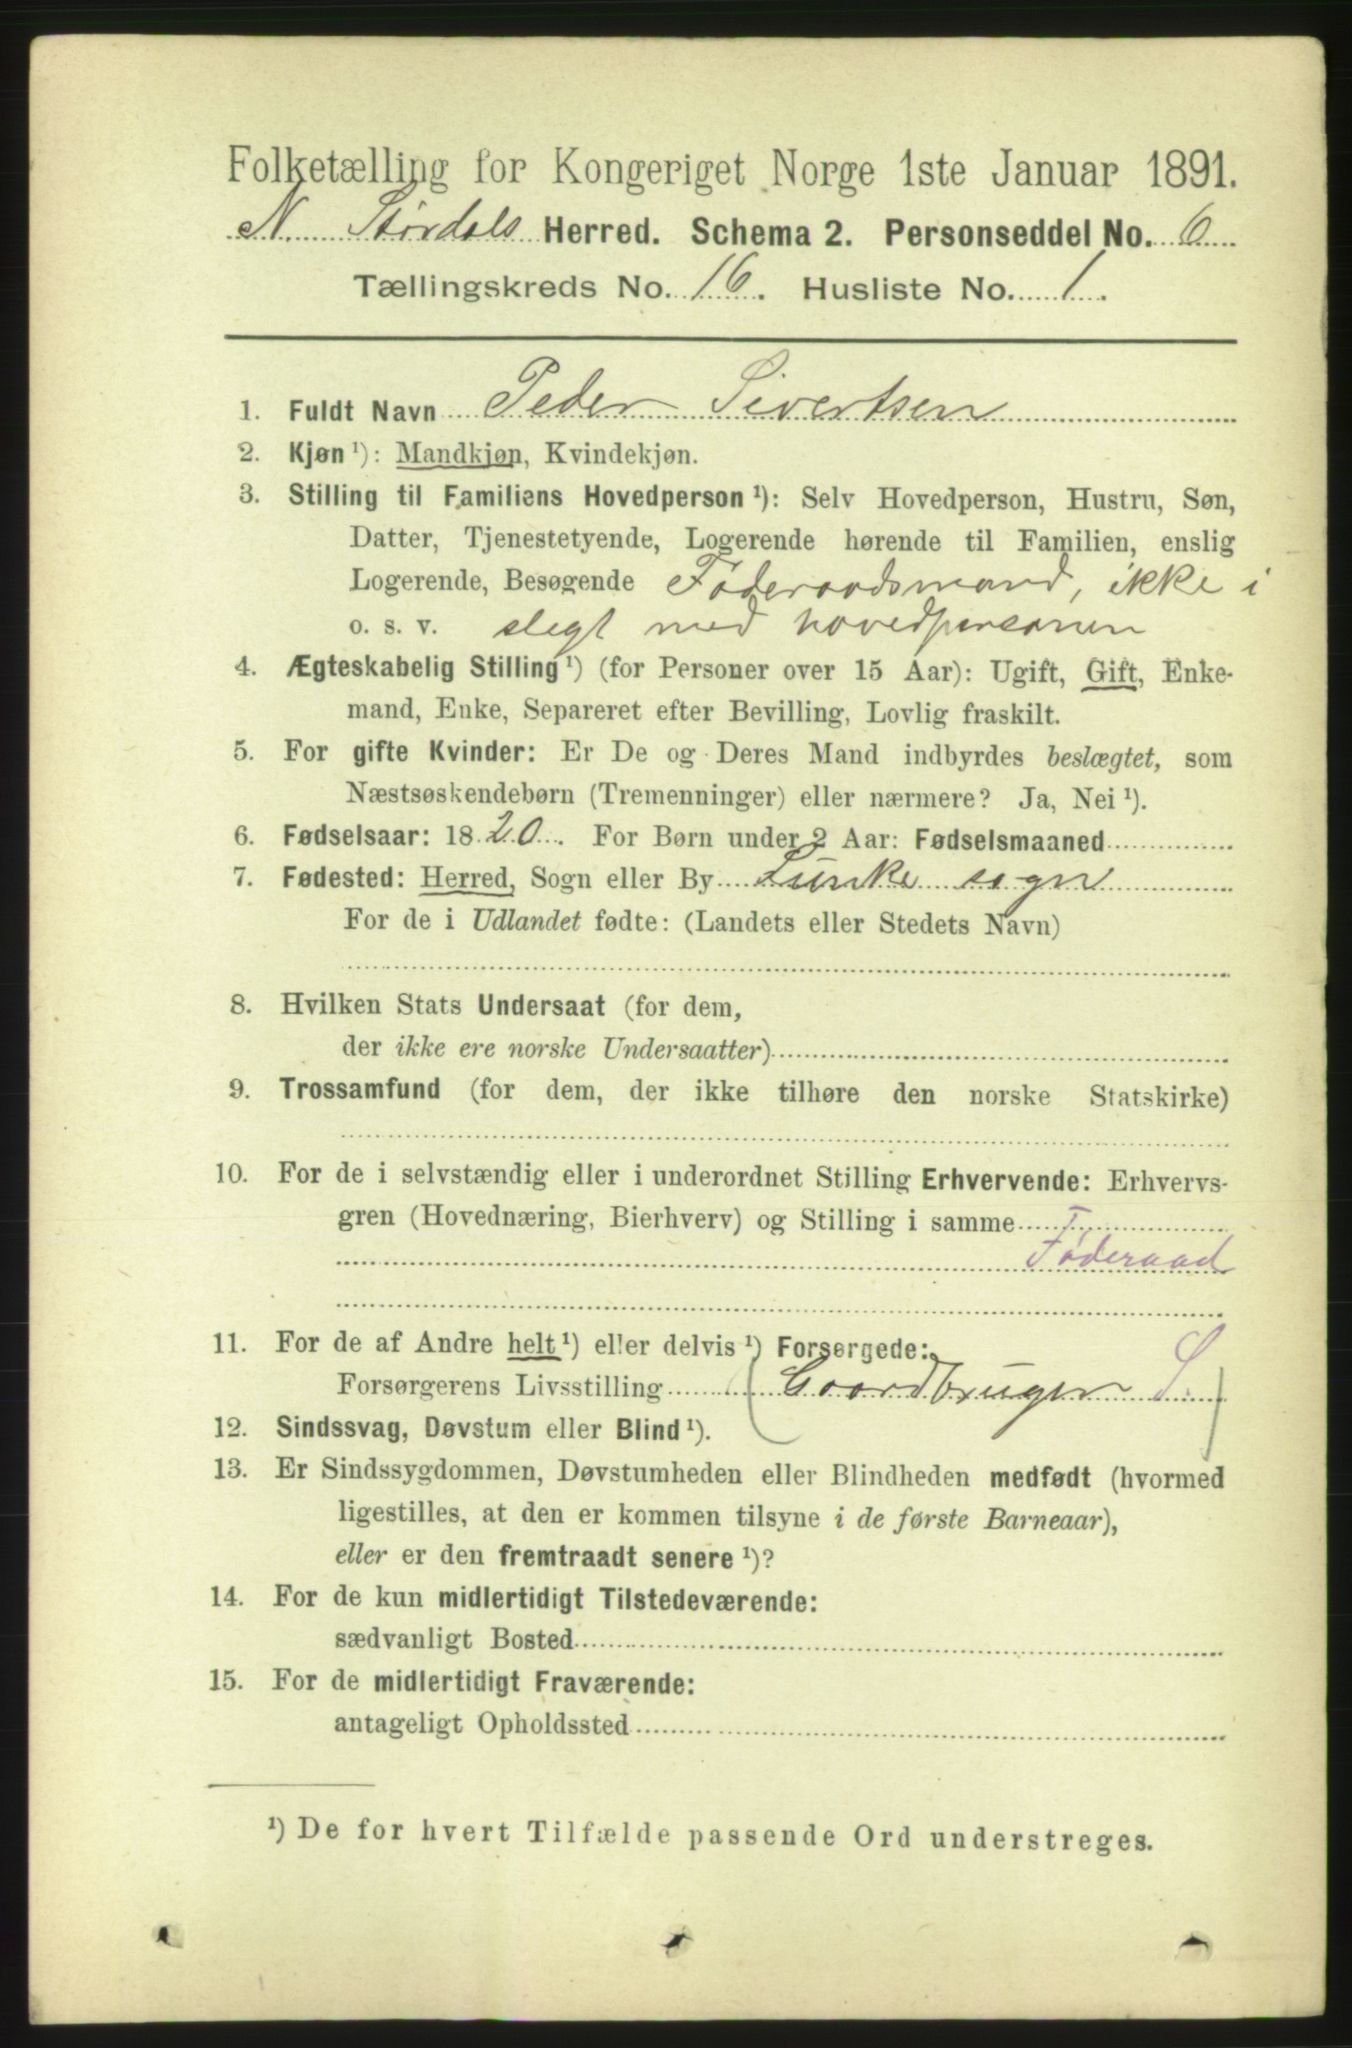 Folketælling for Kongeriget Norge 1ste Januar 1891.
N. Størdals Herred. Schema 2. Personseddel No. 6
Tællingskreds No. 16. Husliste No. 1.
1. Fuldt Navn Peder Sivertsen
2. Kjøn ¹): Mandkjøn, Kvindekjøn.
3. Stilling til Familiens Hovedperson ¹): Selv Hovedperson, Hustru, Søn,
Datter, Tjenestetyende, Logerende hørende til Familien, enslig
Logerende, Besøgende Føderaadsmand, ikke i
o. s. v. slegt med hovedpersonen
4. Ægteskabelig Stilling ¹) (for Personer over 15 Aar): Ugift, Gift, Enke-
mand, Enke, Separeret efter Bevilling, Lovlig fraskilt.
5. For gifte Kvinder: Er De og Deres Mand indbyrdes beslægtet, som
Næstsøskendebørn (Tremenninger) eller nærmere? Ja, Nei ¹).
6. Fødselsaar: 1820. For Børn under 2 Aar: Fødselsmaaned
7. Fødested: Herred, Sogn eller By Lunke sogn
For de i Udlandet fødte: (Landets eller Stedets Navn)
8. Hvilken Stats Undersaat (for dem,
der ikke ere norske Undersaatter)
9. Trossamfund (for dem, der ikke tilhøre den norske Statskirke)
10. For de i selvstændig eller i underordnet Stilling Erhvervende: Erhvervs-
gren (Hovednæring, Bierhverv) og Stilling i samme
Føderaad
11. For de af Andre helt ¹) eller delvis ¹) Forsørgede:
Forsørgerens Livsstilling (Gaardbruger S.)
12. Sindssvag, Døvstum eller Blind ¹).
13. Er Sindssygdommen, Døvstumheden eller Blindheden medfødt (hvormed
ligestilles, at den er kommen tilsyne i de første Barneaar),
eller er den fremtraadt senere ¹)?
14. For de kun midlertidigt Tilstedeværende:
sædvanligt Bosted
15. For de midlertidigt Fraværende:
antageligt Opholdssted
¹) De for hvert Tilfælde passende Ord understreges.